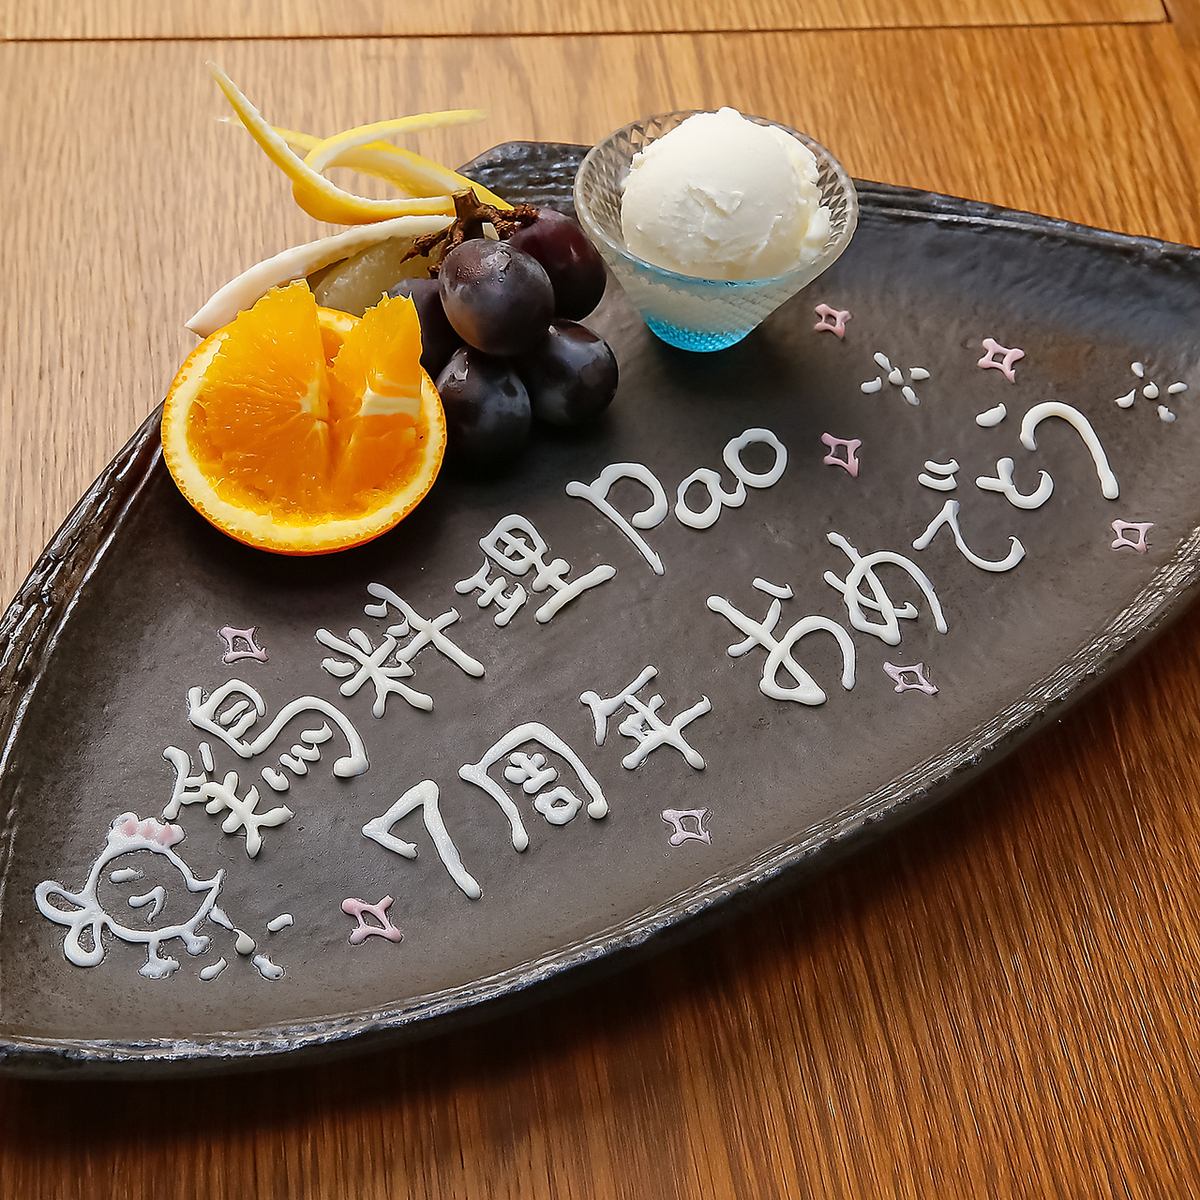 鶏料理 pao
7周年 おめでとう